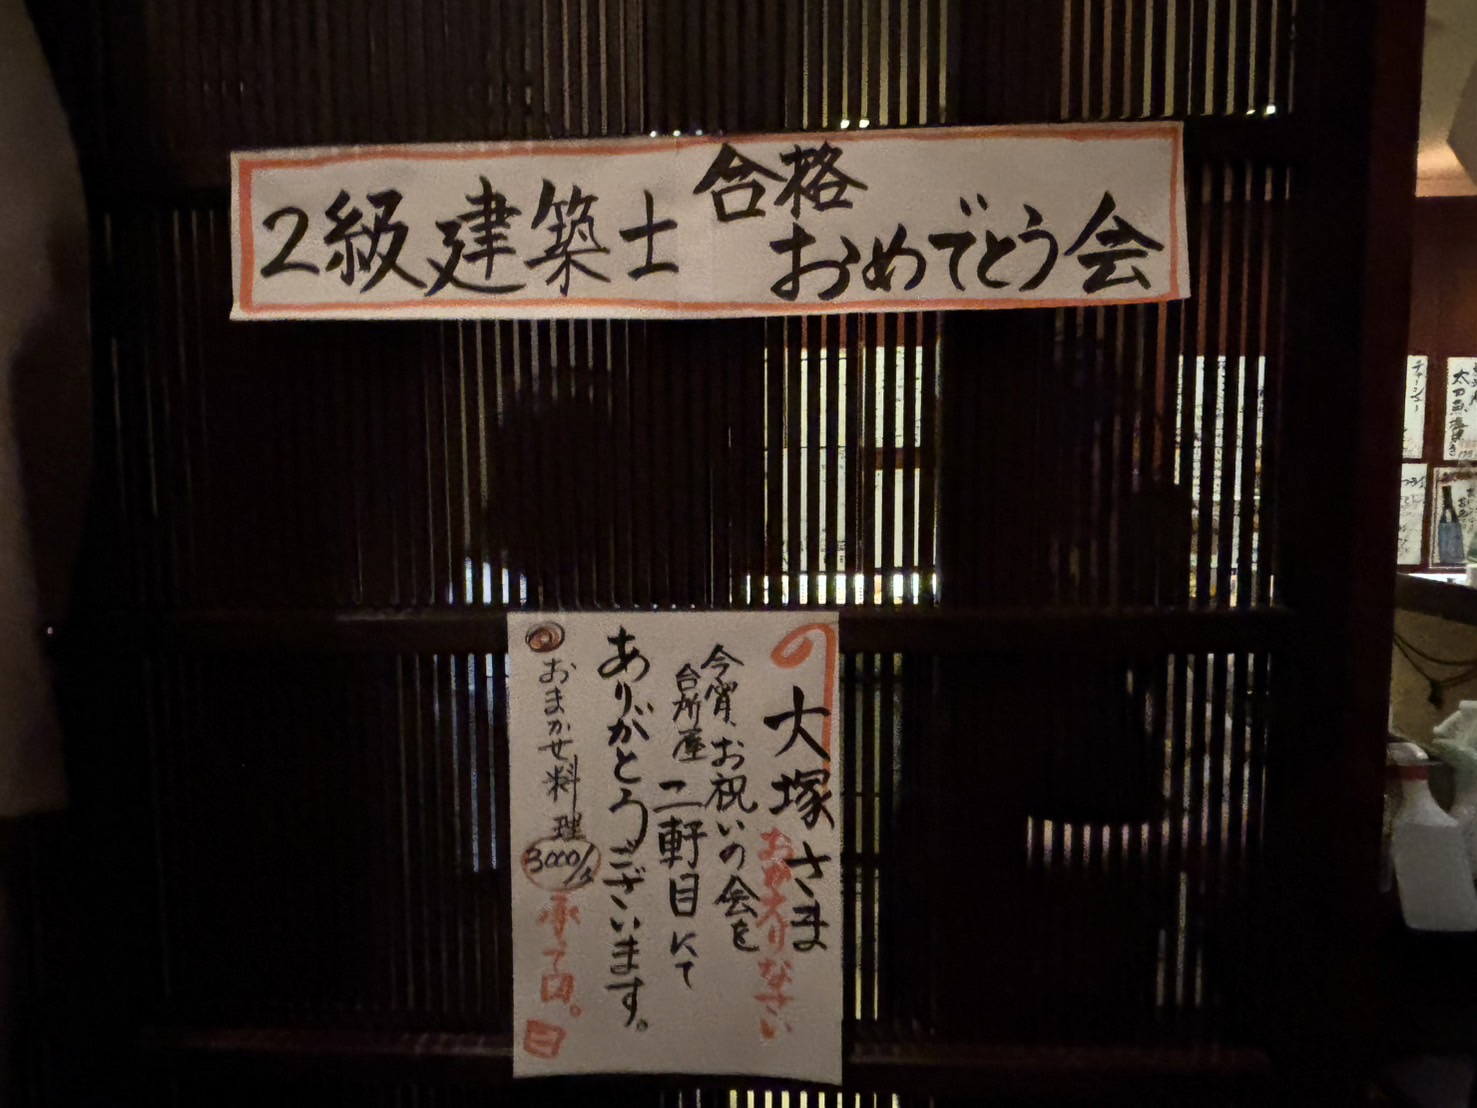 2級建築士 合格
おめでとう会
大塚さま
おかえりなさい
今宵、お祝いの会を
台所屋 二軒目にて
ありがとうございます。
おまかせ料理
3000/
承了
太刀魚